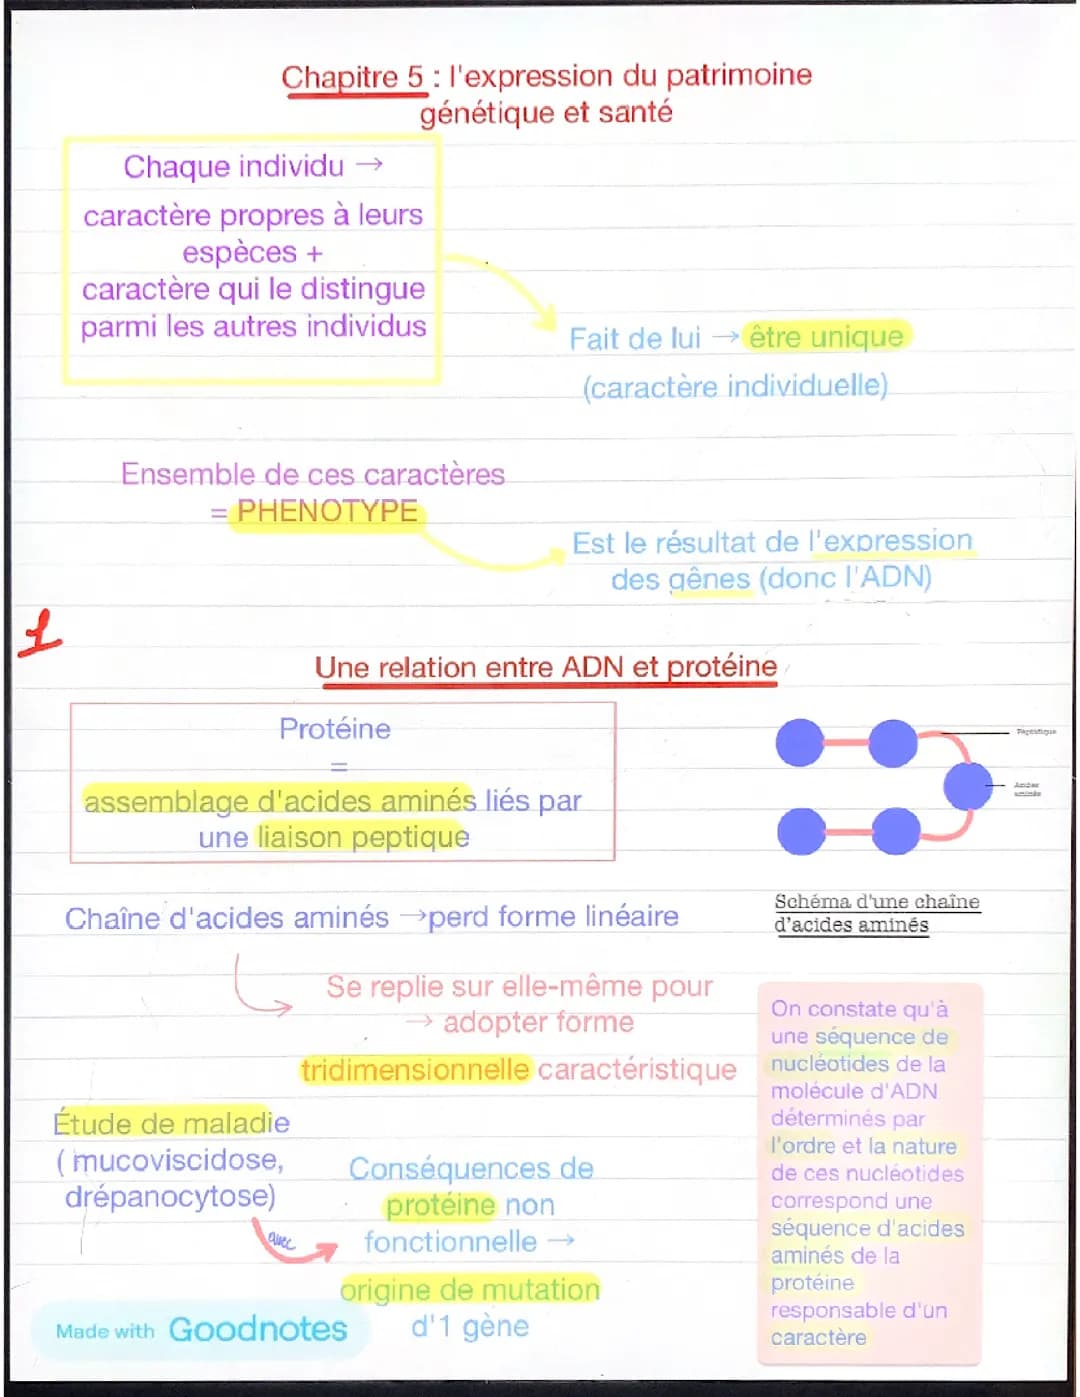 Chapitre 5 : l'expression du patrimoine
génétique et santé
Chaque individu →
caractère propres à leurs
espèces +
caractère qui le distingue
parmi les autres individus
Fait de lui → être unique
(caractère individuelle)
Ensemble de ces caractères
= PHENOTYPE
Est le résultat de l'expression
des gênes (donc l'ADN)
1
Une relation entre ADN et protéine
Protéine
=
assemblage d'acides aminés liés par
une liaison peptique
Peptidique
Acides
aminés
Schéma d'une chaîne
d'acides aminés
Chaîne d'acides aminés → perd forme linéaire
Se replie sur elle-même pour
→ adopter forme
tridimensionnelle caractéristique
On constate qu'à
une séquence de
nucléotides de la
molécule d'ADN
déterminés par
l'ordre et la nature
de ces nucléotides
correspond une
séquence d'acides
aminés de la
protéine
responsable d'un
caractère
Étude de maladie
( mucoviscidose,
drépanocytose)
avec
Conséquences de
protéine non
fonctionnelle →
origine de mutation
d'1 gène
Made with Goodnotes